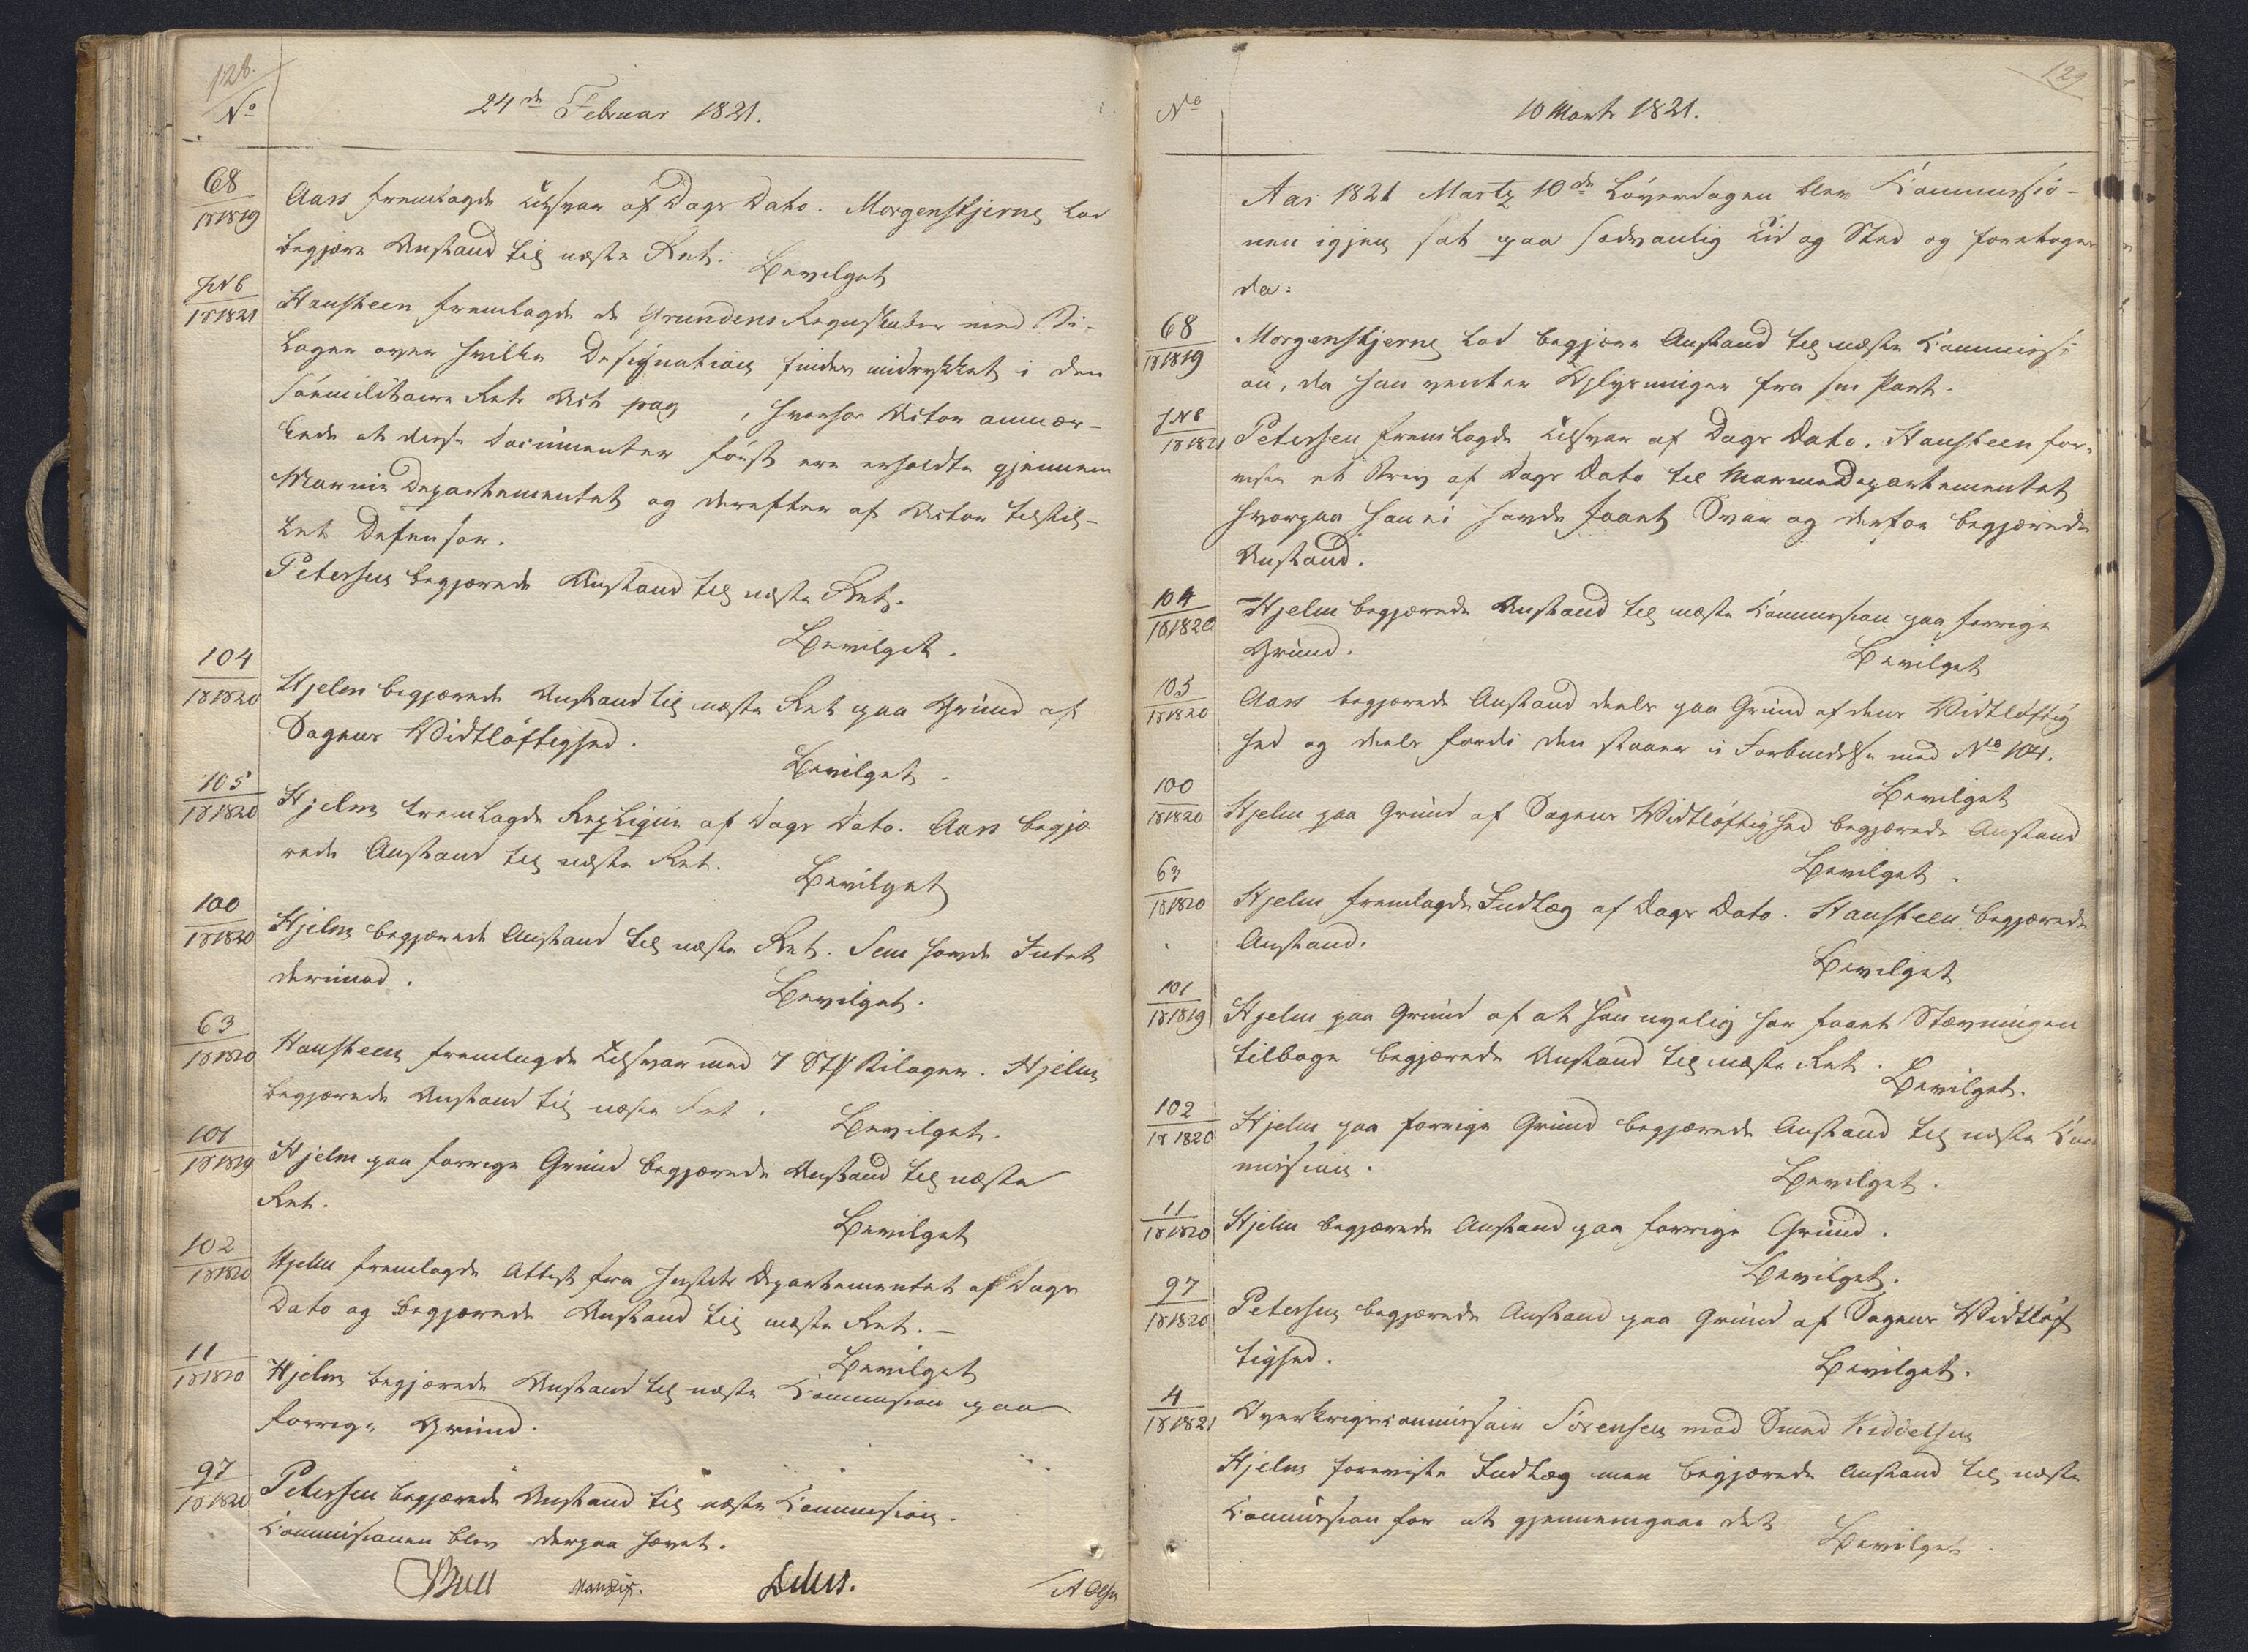 128.
No
24de Februar 1821.
68
/1819
Aars fremlagde Tilsvar af Dags Dato. Morgenstjerne lod
begjære Anstand til næste Ret.
Bevilget
No 6
/1821
Hansteen fremlagde de Grundens Regnskaber med Bi-
lager over hvilke Designation findes indrykket i den
sömilitaire Rets Act pag , hvorhos Actor anmær-
kede at disse Documenter först ere erholdte gjennem
Marine Departementet og derefter af Actor tilstil-
let Defensor.
Petersen begjærede Anstand til næste Ret.
Bevilget.
104
/1820
Hjelm begjærede Anstand til næste Ret paa Grund af
Sagens Vidtlöftighed.
Bevilget.
105
/1820
Hjelm fremlagde Repliqin af Dags Dato. Aars begjæ
rede Anstand til næste Ret.
Bevilget
100
/1820
Hjelm begjærede Anstand til næste Ret. Sem havde Intet
derimod.
Bevilget.
63
/1820
Hansteen fremlagde Tilsvar med 7 Stk Bilager. Hjelm
begjærede Anstand til næste Ret.
Bevilget.
101
/1819
Hjelm paa forrige Grund begjærede Anstand til næste
Ret.
Bevilget
102
/1820
Hjelm fremlagde Attest fra Justits Departementet af Dags
Dato og begjærede Anstand til næste Ret. –
Bevilget
11
/1820
Hjelm begjærede Anstand til næste Commission paa
forrige Grund.
97
/1820
Petersen begjærede Anstand til næste Commission.
Commissionen blev derpaa hævet.
Bull
129
No
10 Marts 1821.
Aar 1821 Martz 10de Löverdagen blev Commissio-
nen igjen sat paa sædvanlig Tid og Sted og foretoges
da:
68
/1819
Morgenstjerne lod begjære Anstand til næste Commissi
on, da han venter Oplysninger fra sin Part.
No 6
/1821
Petersen fremlagde Tilsvar af Dags Dato. Hansteen for-
viste et Brev af Dags Dato til Marine Departementet
hvorpaa han ei havde faaet Svar og derfor begjærede
Anstand.
104
/1820
Hjelm begjærede Anstand til næste Commission paa forrige
Grund.
Bevilget
105
/1820
Aars begjærede Anstand deels paa Grund af dens Vidtlöftig
hed og deels fordi den staaer i Forbindelse med No 104.
Bevilget
100
/1820
Hjelm paa Grund af Sagens Vidtlöftighed begjærede Anstand
Bevilget.
63
/1820
Hjelm fremlagde Indlæg af Dags Dato. Hansteen begjærede
Anstand.
Bevilget
101
/1819
Hjelm paa Grund af at han nyelig har faaet Stævningen
tilbage begjærede Anstand til næste Ret.
Bevilget.
102
/1820
Hjelm paa forrige Grund begjærede Anstand til næste Com
mission.
Bevilget.
11
/1820
Hjelm begjærede Anstand paa forrige Grund.
Bevilget.
97
/1820
Petersen begjærede Anstand paa Grund af Sagens Vidtlöf
tighed.
Bevilget.
4
/1821
Overkrigscommissair Sörensen mod Svend Kiddelsen
Hjelm foreviste Indlæg men begjærede Anstand til næste
Commission for at gjennemgaae det
Bevilget